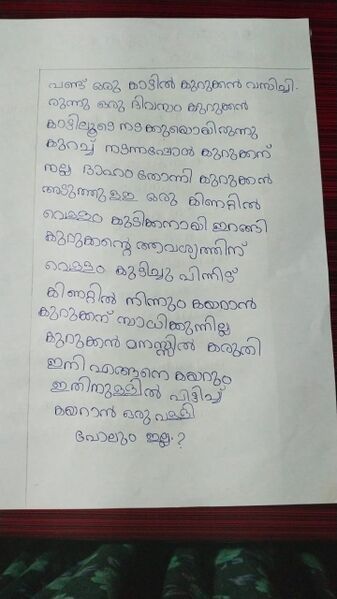 പണ്ട് ഒരു കാട്ടിൽ കുറുക്കൻ വസിച്ചി.
രുന്നു ഒരു ദിവസം കുറുക്കൻ
കാട്ടിലൂടെ നടക്കുകയായിരുന്നു
കുറച്ച് നടന്നപ്പോൾ കുറുക്കന്
നല്ല ദാഹം തോന്നി കുറുക്കൻ
അടുത്തുള്ള ഒരു കിണറ്റിൽ
വെള്ളം കുടിക്കാനായി ഇറങ്ങി
കുറുക്കന്റെ ആവശ്യത്തിന്
വെള്ളം കുടിച്ചു പിന്നീട്
കിണറ്റിൽ നിന്നും കയറാൻ
കുറുക്കന് സാധിക്കുന്നില്ല
കുറുക്കൻ മനസ്സിൽ കരുതി
ഇനി എങ്ങനെ കയറും
ഇതിനുള്ളിൽ പിടിച്ച്
കയറാൻ ഒരു വള്ളി
പോലും ഇല്ല.?